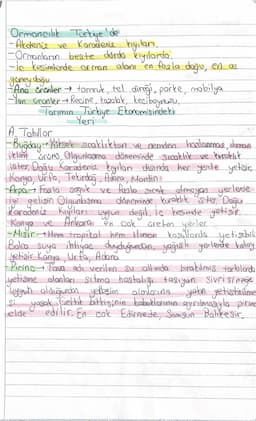 Ormancılık Türkiye'de
-Akdeniz ve Karadeniz kıyıları.
-Ormanların beşte dördü kıyılarda.
-İç kesimlerde orman alanı en fazla doğu, en az
güneydoğu
-Ana ürünler → tomruk, tel direği, parke, mobilya
-Yan ürünler → Reçine, tozaklık, keçiboynuzu.
Tarımın Türkiye Ekonomisindeki
Yeri
A. Tahıllar
-Buğday → Yüksek sıcaklıktan ve nemden hoşlanmaz,
iklim ürünü. Olgunlaşma döneminde sıcaklık ve kuraklık
ister. Doğu Karadeniz kıyıları dışında her yerde yetişir.
Konya, Urfa, Tekirdağ, Adana, Mardin
-Arpa → Fazla soğuk ve fazla sıcak olmayan yerlerde
iyi gelişir. Olgunlaşma döneminde kuraklık ister. Doğu
Karadeniz kıyıları uygun değil. İç kesimde yetişir.
Konya ve Ankara en çok üreten yerler
-Mısır → Hem tropikal hem ılıman kuşaklarda yetişebilir.
Bolca suya ihtiyaç duyduğundan, yağışlı yerlerde kolay
yetişir. Konya, Urfa, Adana
-Pirinç → Tava adı verilen su altında bırakılmış tarlalarda
yetişme alanları sıtma hastalığı taşıyan sivrisineğe
uygun olduğundan yerleşim alanlarına yakın yetiştirilme
si yasak. Çeltik bitkisinin kabuklarının ayrılmasıyla pirinç
elde edilir. En çok Edirne'de, Samsun Balıkesir.